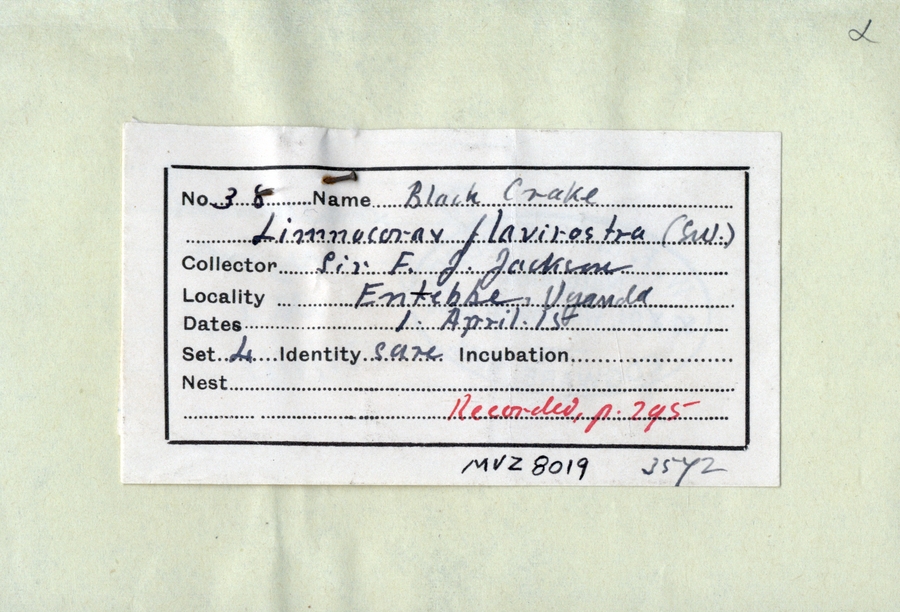 No. 38 Name Black Crake
Limnocorax flavirostra (Sw.)
Collector Sir F. J. Jackson
Locality Entebbe, Uganda
Dates 1. April. 1st
Set 4 Identity sure Incubation
Nest
Recorded, p. 295
MVZ 8019 3542